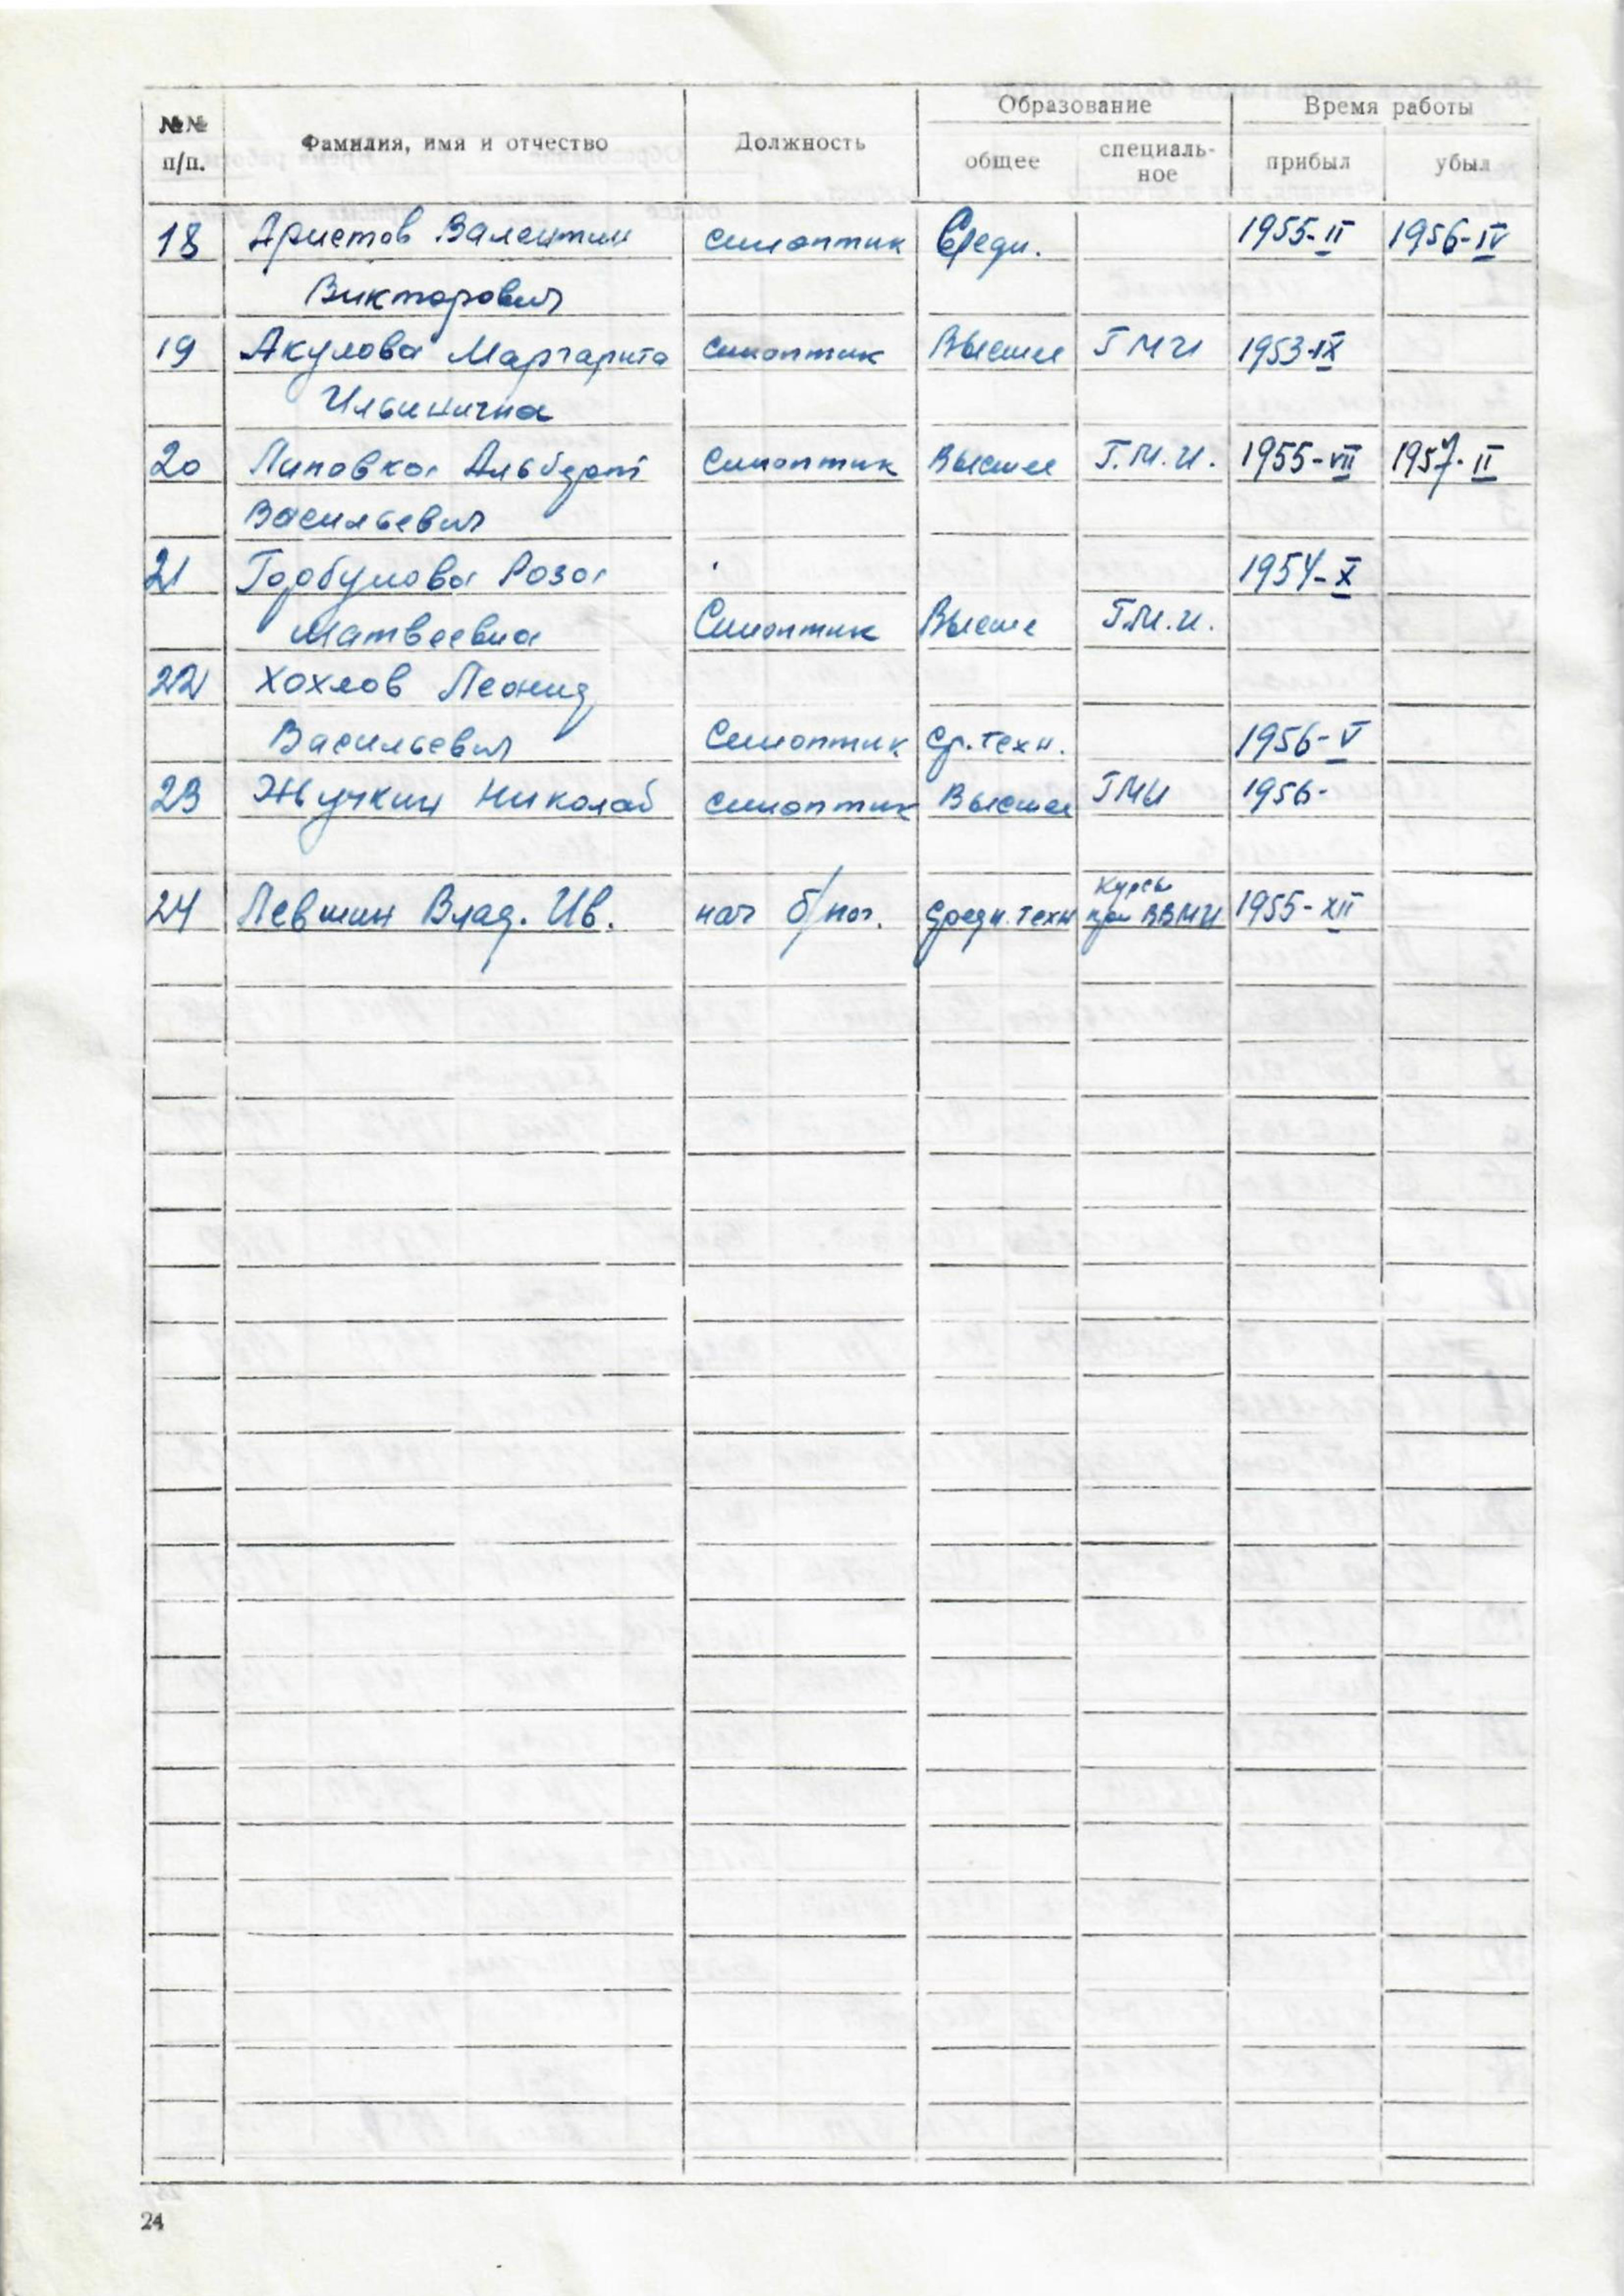 №№ п/п. Фамилия, имя и отчество Должность Образование Время работы
общее специаль-ное прибыл убыл
18 Аристов Валентин синоптик Средн. 1955-II 1956-IV
Викторович
19 Акулова Маргарита синоптик Высшее ГМИ 1953-IX
Ильинична
20 Липовка Альберт Синоптик Высшее Г.М.И. 1955-VII 1957-II
Васильевич
21 Горбунова Роза 1954-X
Матвеевна Синоптик Высше Г.М.И.
22 Хохлов Леонид
Васильевич Синоптик Ср.техн. 1956-V
23 Жучкин Николай синоптик Высшее ГМИ 1956-
24 Левшин Влад. Ив. нач б/пог. средн. техн Курсы при ВВМИ 1955-XII
24